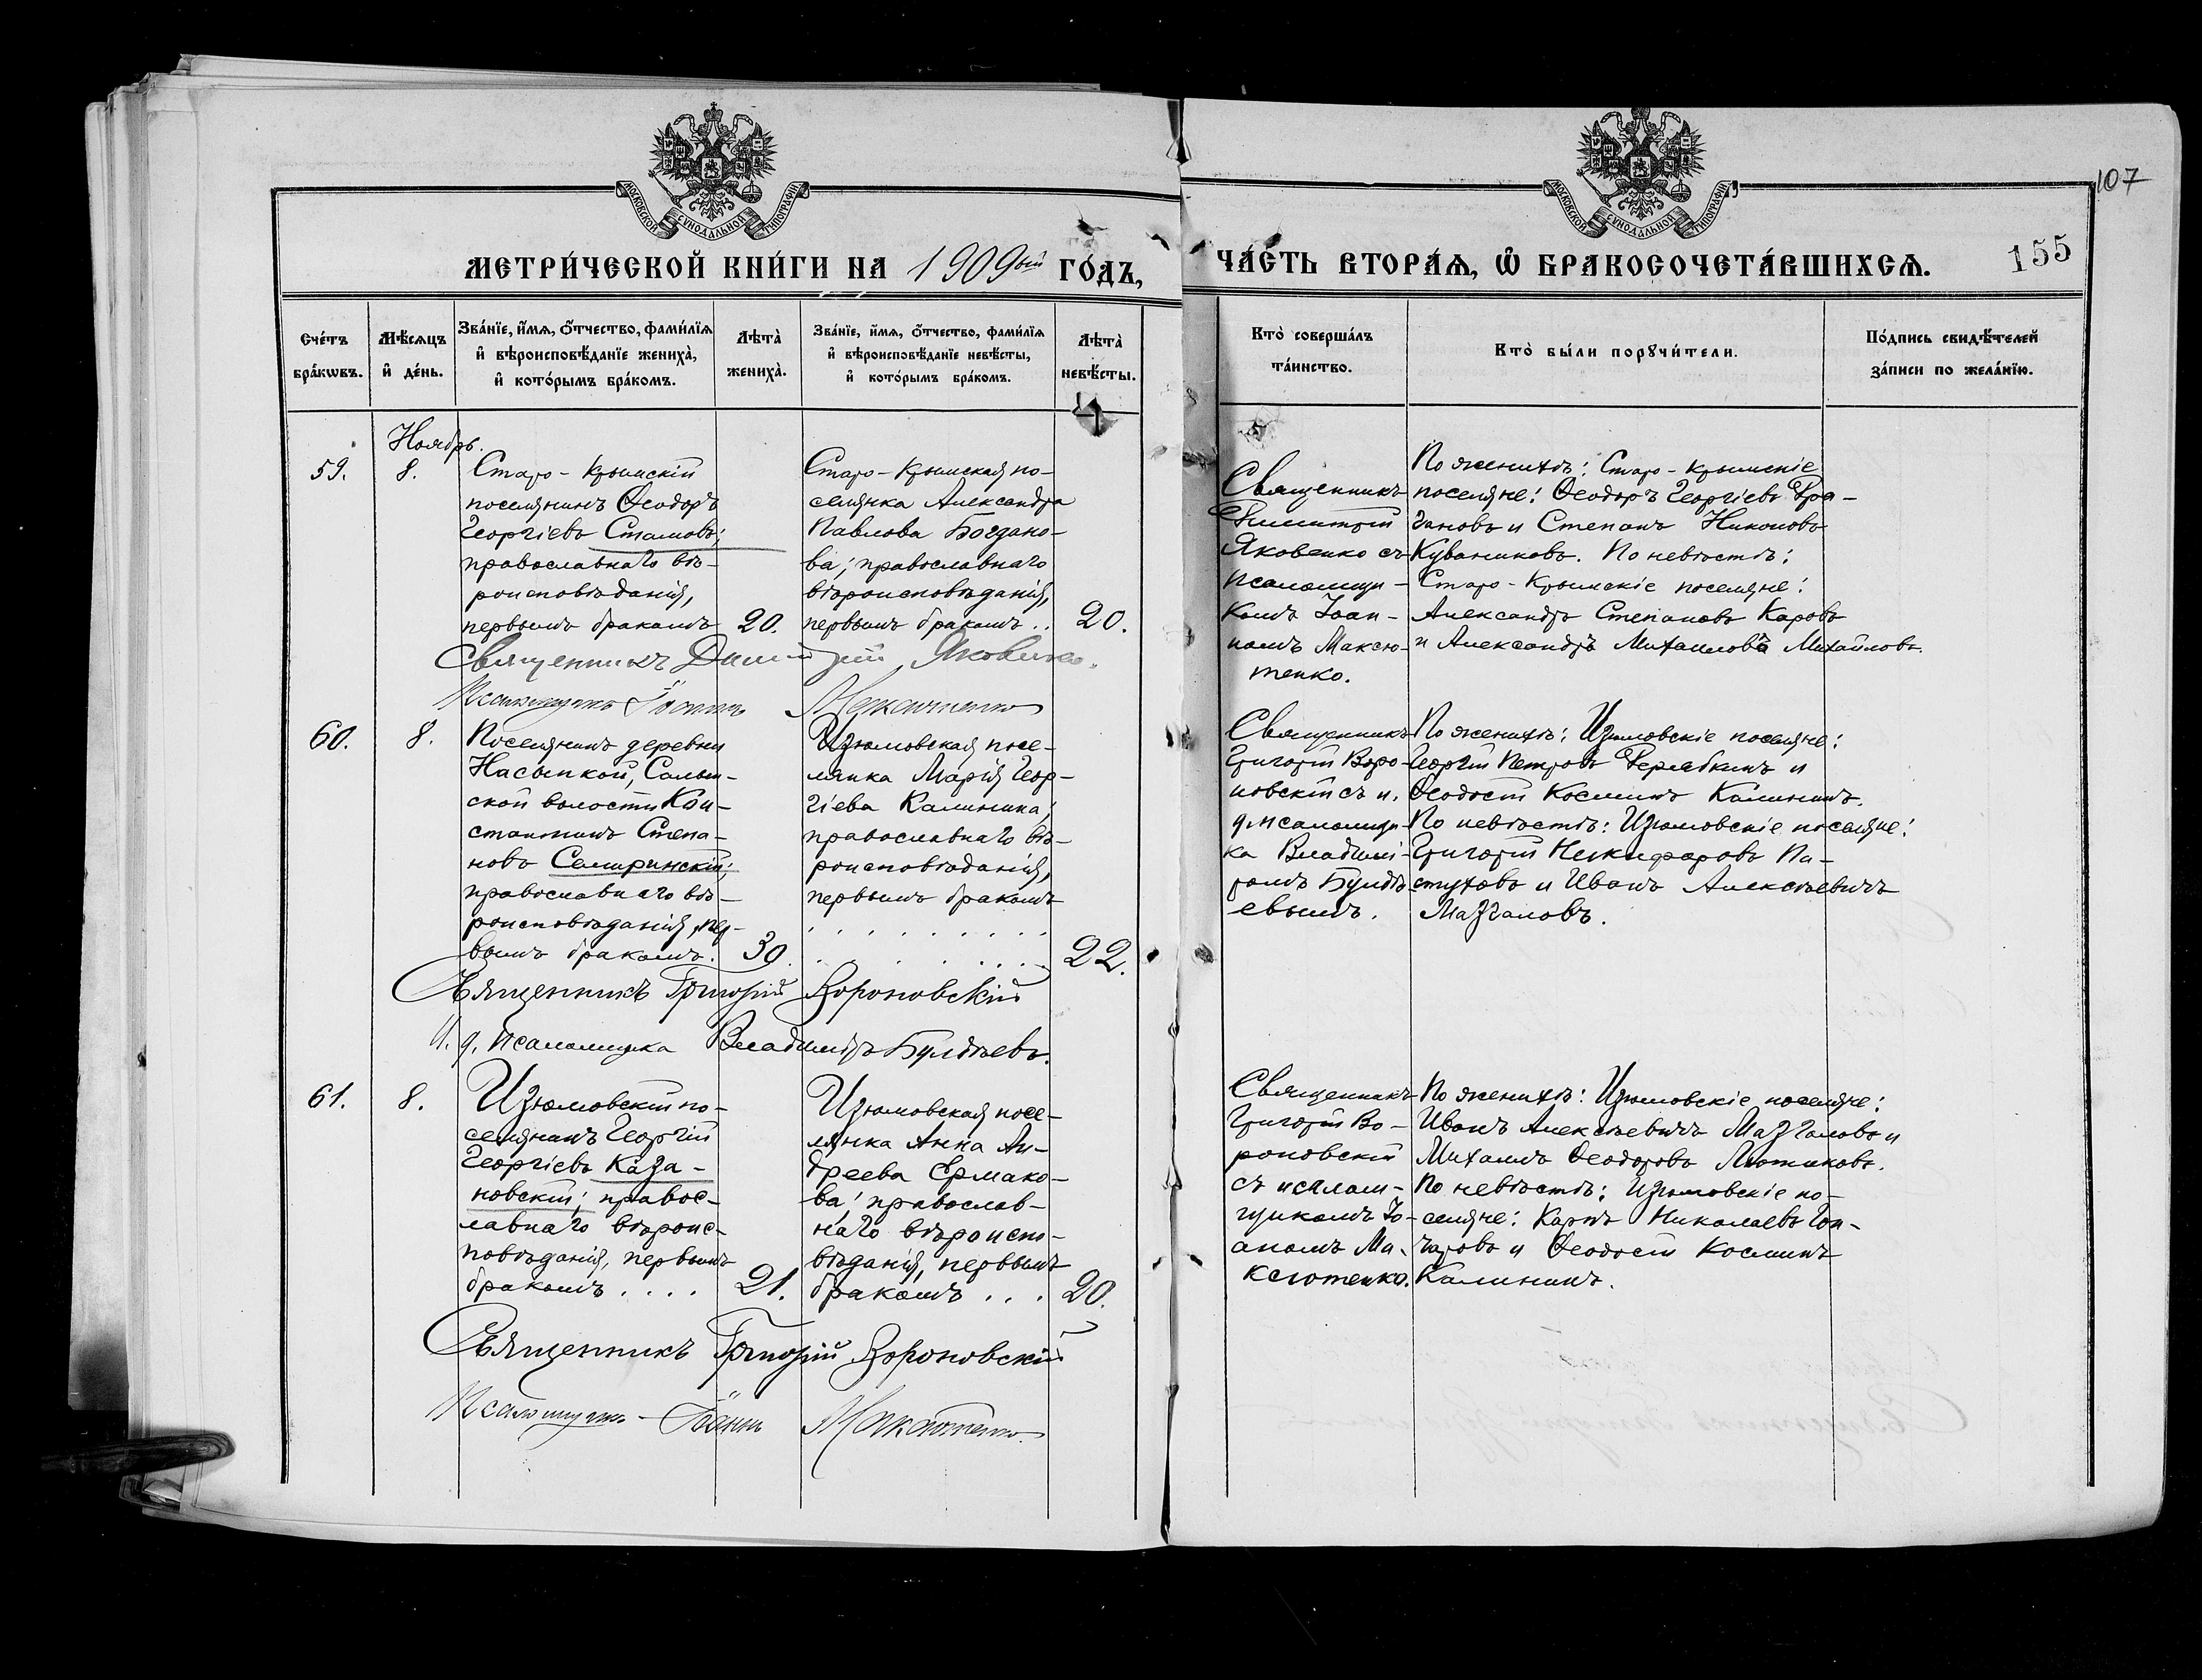 107
МОСКОВСКОЙ СѴНОДАЛЬНОЙ ТИПОГРАФІИ
МОСКОВСКОЙ СѴНОДАЛЬНОЙ ТИПОГРАФІИ
МЕТРИ́ЧЕСКОЙ КНИ́ГИ НА 1909ый ГО́ДЪ,
ЧА́СТЬ ВТОРА́Ѧ, Ѡ҆ БРАКОСОЧЕТА́ВШИХСѦ.
155
Сче́тъ
бра́кѡвъ.
Мѣ́сѧцъ
и҆ де́нь.
Зва́нїе, и҆́мѧ, ѻ҆́тчество, фами́лїѧ
и҆ вѣроисповѣ́данїе жениха̀,
и҆ кото́рымъ бра́комъ.
Лѣта̀
жениха̀.
Зва́нїе, и҆́мѧ, ѻ҆́тчество, фами́лїѧ
и҆ вѣроисповѣ́данїе невѣ́сты,
и҆ кото́рымъ бра́комъ.
Лѣта̀
невѣ́сты.
Кто̀ соверша́лъ
та́инство.
Кто̀ бы́ли порꙋчи́тели.
По́дпись свидѣ́телей
за́писи по жела́нїю.
Ноябрь.
59.
8.
Старо-Крымскій
поселянинъ Ѳеодоръ
Георгіевъ Стамовъ;
православнаго вѣ-
роисповѣданія,
первымъ бракомъ
20.
Старо-Крымская по-
селянка Александра
Павлова Богдано-
ва; православнаго
вѣроисповѣданія,
первымъ бракомъ ..
20.
Священникъ
Димитрій
Яковенко съ
псаломщи-
комъ Іоан-
номъ Максю-
тенко.
По женихѣ: Старо-Крымскіе
поселяне: Ѳеодоръ Георгіевъ Дра-
гановъ и Степанъ Никоновъ
Куваниковъ. По невѣстѣ:
Старо-Крымскіе поселяне:
Александръ Степановъ Каровъ
и Александръ Михаиловъ Михайловъ.
Священникъ Димитрій Яковенко.
Псаломщикъ Іоаннъ Максютенко
60.
8.
Поселянинъ деревни
Насыпкой, Салын-
ской волости Кон-
стантинъ Степа-
новъ Самиринскій;
православнаго вѣ-
роисповѣданія, пер-
вымъ бракомъ.
30.
Изюмовская посе-
лянка Марія Геор-
гіева Калинина;
православнаго вѣ-
роисповѣданія,
первымъ бракомъ
. . . . . . . . .
. . . . . . .
22.
Священникъ
Григорій Воро-
новскій съ и.
д. псаломщи-
ка Владимі-
ромъ Булдѣ-
евымъ.
По женихѣ: Изюмовскіе поселяне:
Георгій Петровъ Дерябкинъ и
Ѳеодосій Косминъ Калининъ.
По невѣстѣ: Изюмовскіе поселяне:
Григорій Никифоровъ Па-
стуховъ и Иванъ Алексѣевичъ
Мазгановъ.
Священникъ Григорій Вороновскій
И. д. псаломщика Владиміръ Булдѣевъ.
61.
8.
Изюмовскій по-
селянинъ Георгій
Георгіевъ Каза-
новскій; правос-
лавнаго вѣроис-
повѣданія, первымъ
бракомъ ....
21.
Изюмовская посе-
лянка Анна Ан-
дреева Ермако-
ва; православ-
наго вѣроиспо-
вѣданія, первымъ
бракомъ ...
20.
Священникъ
Григорій Во-
роновскій
съ псалом-
щикомъ Іо-
анномъ Ма-
ксютенко.
По женихѣ: Изюмовскіе поселяне:
Иванъ Алексѣевичъ Мазгановъ и
Михаилъ Ѳеодоровъ Лютиковъ.
По невѣстѣ: Изюмовскіе по-
селяне: Карпъ Николаевъ Гон-
чаровъ и Ѳеодосій Косминъ
Калининъ.
Священникъ Григорій Вороновскій
Псаломщикъ Іоаннъ Максютенко